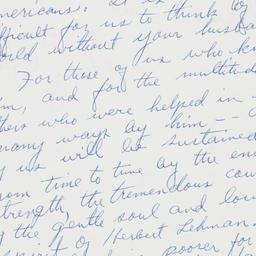 mericans. It is
fficult for us to think of
orld without your husba
For those of us who kn
m, and for the multitud
thers who were helped in
many ways by him --
y us will be sustained
rom time to time by the
strength, the tremendous cou
y the gentle soul and lov
spirit of Herbert Lehman.
poorer for